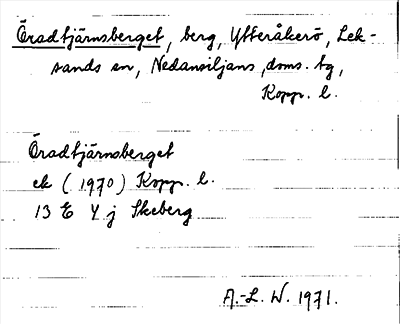 Öradtjärnsberget, berg, Ytteråkerö, Lek-
sands sn, Nedansiljans, doms. tg,
Kopp. l.
Öradtjärnsberget
ek (1970) Kopp. l.
13 E 4 j Skeberg
A.-L. W. 1971.